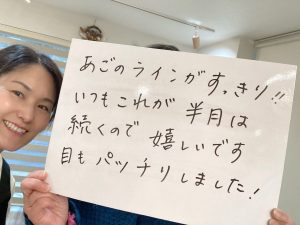 あごのラインがすっきり!!
いつもこれが 半月は
続くので 嬉しいです
目もパッチリしました!